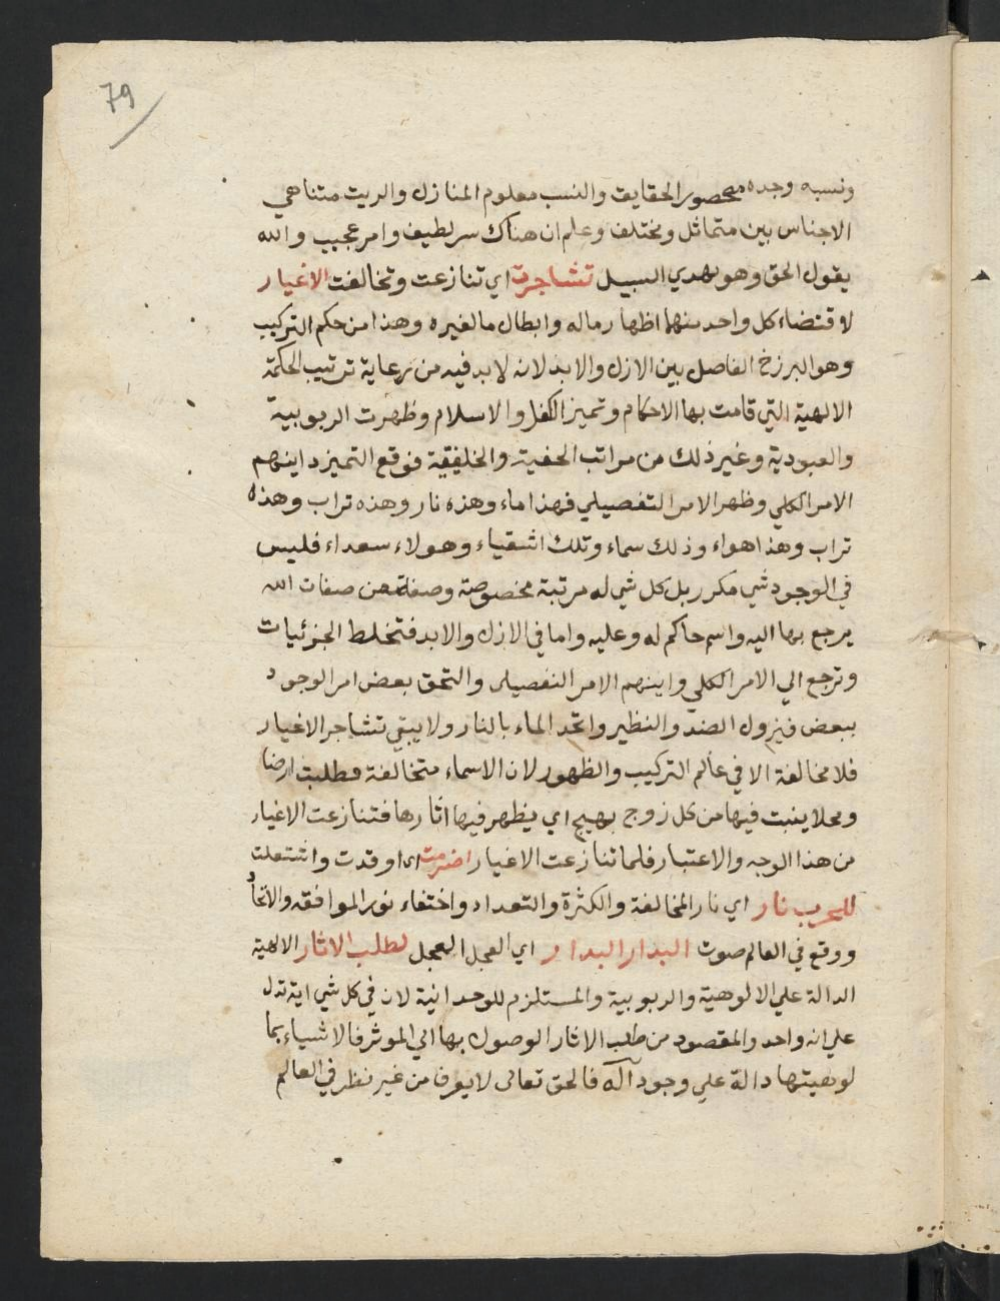 79
ونسبه وجده محصور الحقايق والنسب معلوم المنازل والريت متناهي
الاجناس بين متماثل ومختلف وعلم ان هناك سر لطيف وامر عجيب والله
يقول الحق وهو يهدي السبيل تشاجرت اي تنازعت وتخالفت الاغيار
لاقتضاء كل واحد منهما اظهار ماله وابطال مالغيره وهذا من حكم التركيب
وهو البرزخ الفاصل بين الازل والابد لانه لابد فيه من رعاية ترتيب الحكمة
الالهية التي قامت بها الاحكام وتميز الكفر والاسلام وظهرت الربوبية
والعبودية وغير ذلك من مراتب الحقية والخلقية فوقع التميز د اينهم
الامر الكلي وظهر الامر التفصيلي فهذا ماء وهذه نار وهذه تراب وهذه
تراب وهذا هواء وذلك سماء وتلك اشقياء وهولاء سعداء فليس
في الوجود شي مكرر بل كل شي له مرتبة مخصوصة وصفة من صفات الله
يرجع بها اليه واسم حاكم له وعليه واما في الازل والابد فتختلط الجزئيات
وترجع الي الامر الكلي واينهم الامر التفصيلي والتحق بعض امر الوجود
ببعض فيزول الضد والنظير واتحد الماء بالنار ولا يبقي تشاجر الاغيار
فلا مخالفة الا في عالم التركيب والظهور لان الاسماء متخالفة فطلبت ارضا
ومحلا ينبت فيها من كل زوج بهيج اي يظهر فيها اثارها فتنازعت الاغيار
من هذا الوجه والاعتبار فلما تنازعت الاغيار اضرمت اي اوقدت واشتعلت
للحرب نار اي نار المخالفة والكثرة والتعداد واختفاء نور الموافقه والاتحاد
ووقع في العالم صوت البدار البدار اي العجل العجل لطلب الاثار الالهية
الدالة علي الالوهية والربوبية والمستلزم للوحدانية لان في كل شي اية تدل
علي انه واحد والمقصود من طلب الاثار الوصول بها الي الموثر فالاشياء بما
لوهيتها دالة علي وجود آله فالحق تعالى لا يعرف من غير نظر في العالم